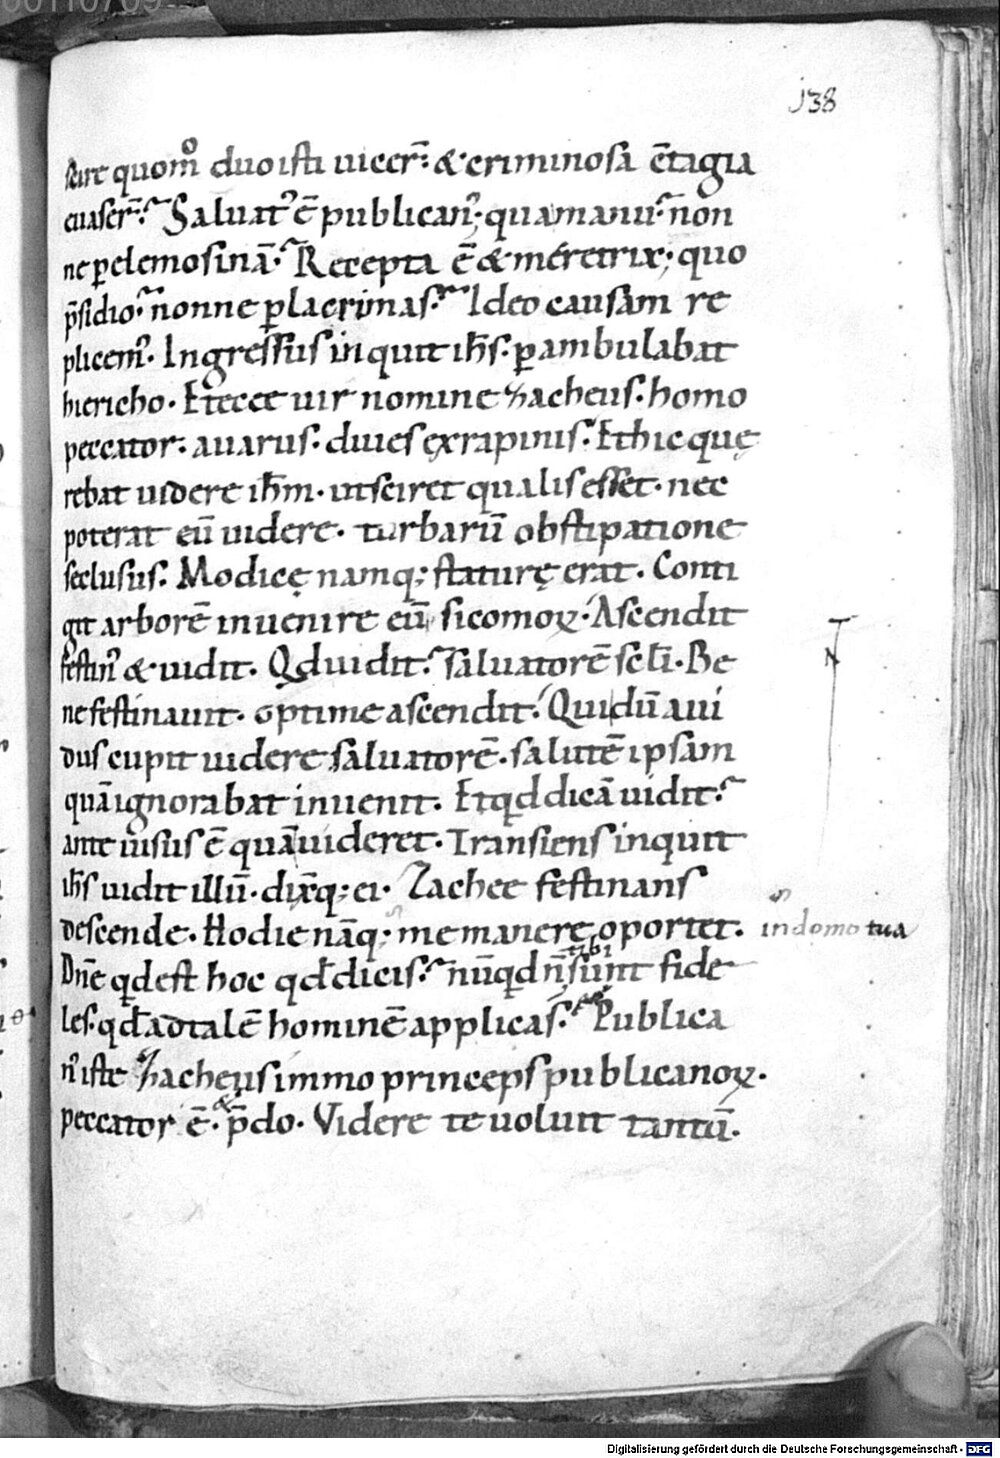 138
scire quom̊ duo isti uicer̄: & criminosa c̄tagia
euaser̄: Saluat᷒ ē publican᷒; qua manu: non
ne ꝑ elemosinā. Recepta ē & meretrix; quo
p̄sidio. nonne ꝑ lacrimas. Ideo causam re
plicem᷒. Ingressus inquit ih̄s. ꝑambulabat
hiericho. Et ecce uir nomine zacheus. homo
peccator. auarus. diues ex rapinis. Et hic quę
rebat uidere ih̄m. ut sciret qualis esset. nec
poterat eū uidere. turbarū obstipatione
seclusus. Modicę namq; staturę erat. Conti
git arborē inuenire eū sicomoꝝ. Ascendit
festin᷒ & uidit. Qd uidit. saluatorē scl̄i. Be
ne festinauit. optime ascendit. Qui dū aui
dus cupit uidere saluatorē. salutē ipsam
quā ignorabat inuenit. Et qd dicā uidit.
ante uisus ē quā uideret. Transiens inquit
ih̄s uidit illū. dixitq; ei. Zachee festinans
descende. Hodie nāq; me manere oportet. in domo tua
tibi
Dn̄e qd est hoc qd dicis. nūqd n̄ sunt fide
les. qd ad talē hominē applicas. Publica
n᷒ iste zacheus immo princeps publicanoꝝ.
&
peccator ē. p̄do. Videre te uoluit tantū.
Digitalisierung gefördert durch die Deutsche Forschungsgemeinschaft - DFG